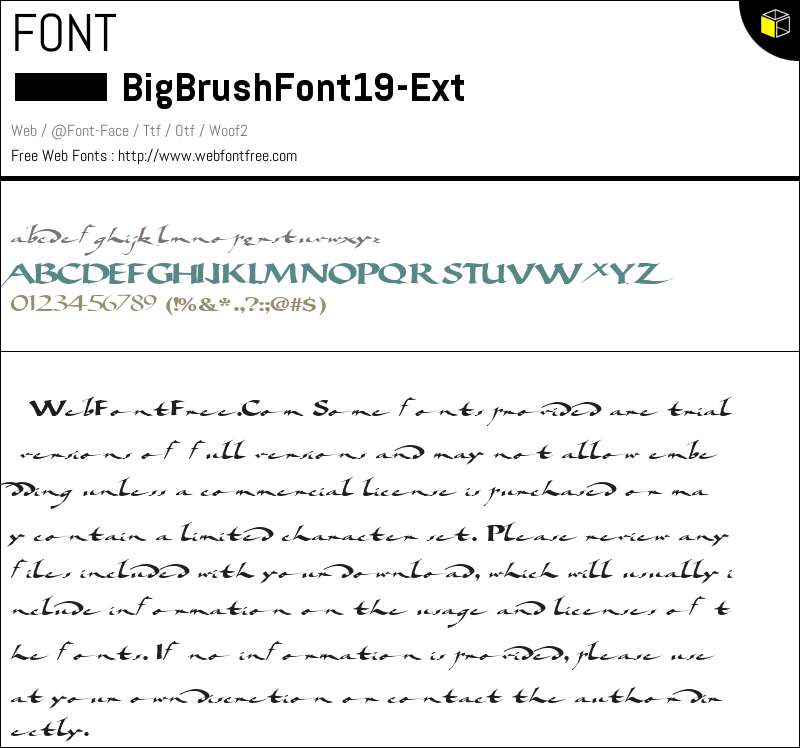 FONT
BigBrushFont19-Ext
Web / @Font-Face / Ttf / Otf / Woof2
Free Web Fonts : http://www.webfontfree.com
abcdefghijklmnopqrstuvwxyz
ABCDEFGHIJKLMNOPQRSTUVWXYZ
0123456789 (!%&*.,?:;@#$)
WebFontFree.Com Some fonts provided are trial
versions of full versions and may not allow embe
dding unless a commercial license is purchased or ma
y contain a limited character set. Please review any
files included with your download, which will usually i
nclude information on the usage and licenses of t
he fonts. If no information is provided, please use
at your own discretion or contact the author dir
ectly.